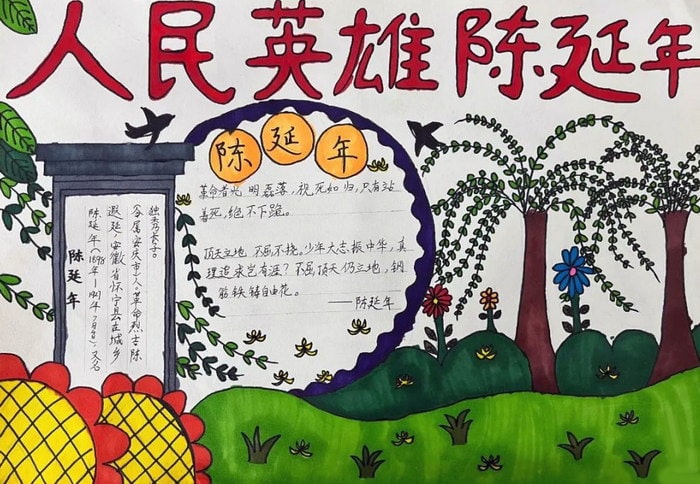 人民英雄陈延年
陈延年
革命者光明磊落,视死如归,只有站
着死,绝不下跪。
顶天立地 不屈不挠。少年大志振中华,真
理追求岂有涯?不屈顶天仍立地,钢
筋铁铸自由花。
——陈延年
陈延年
陈延年(1898年—1927年7月4日),又名
遐延,安徽省怀宁县在城乡
今属安庆市)人,革命烈士陈
独秀长子。